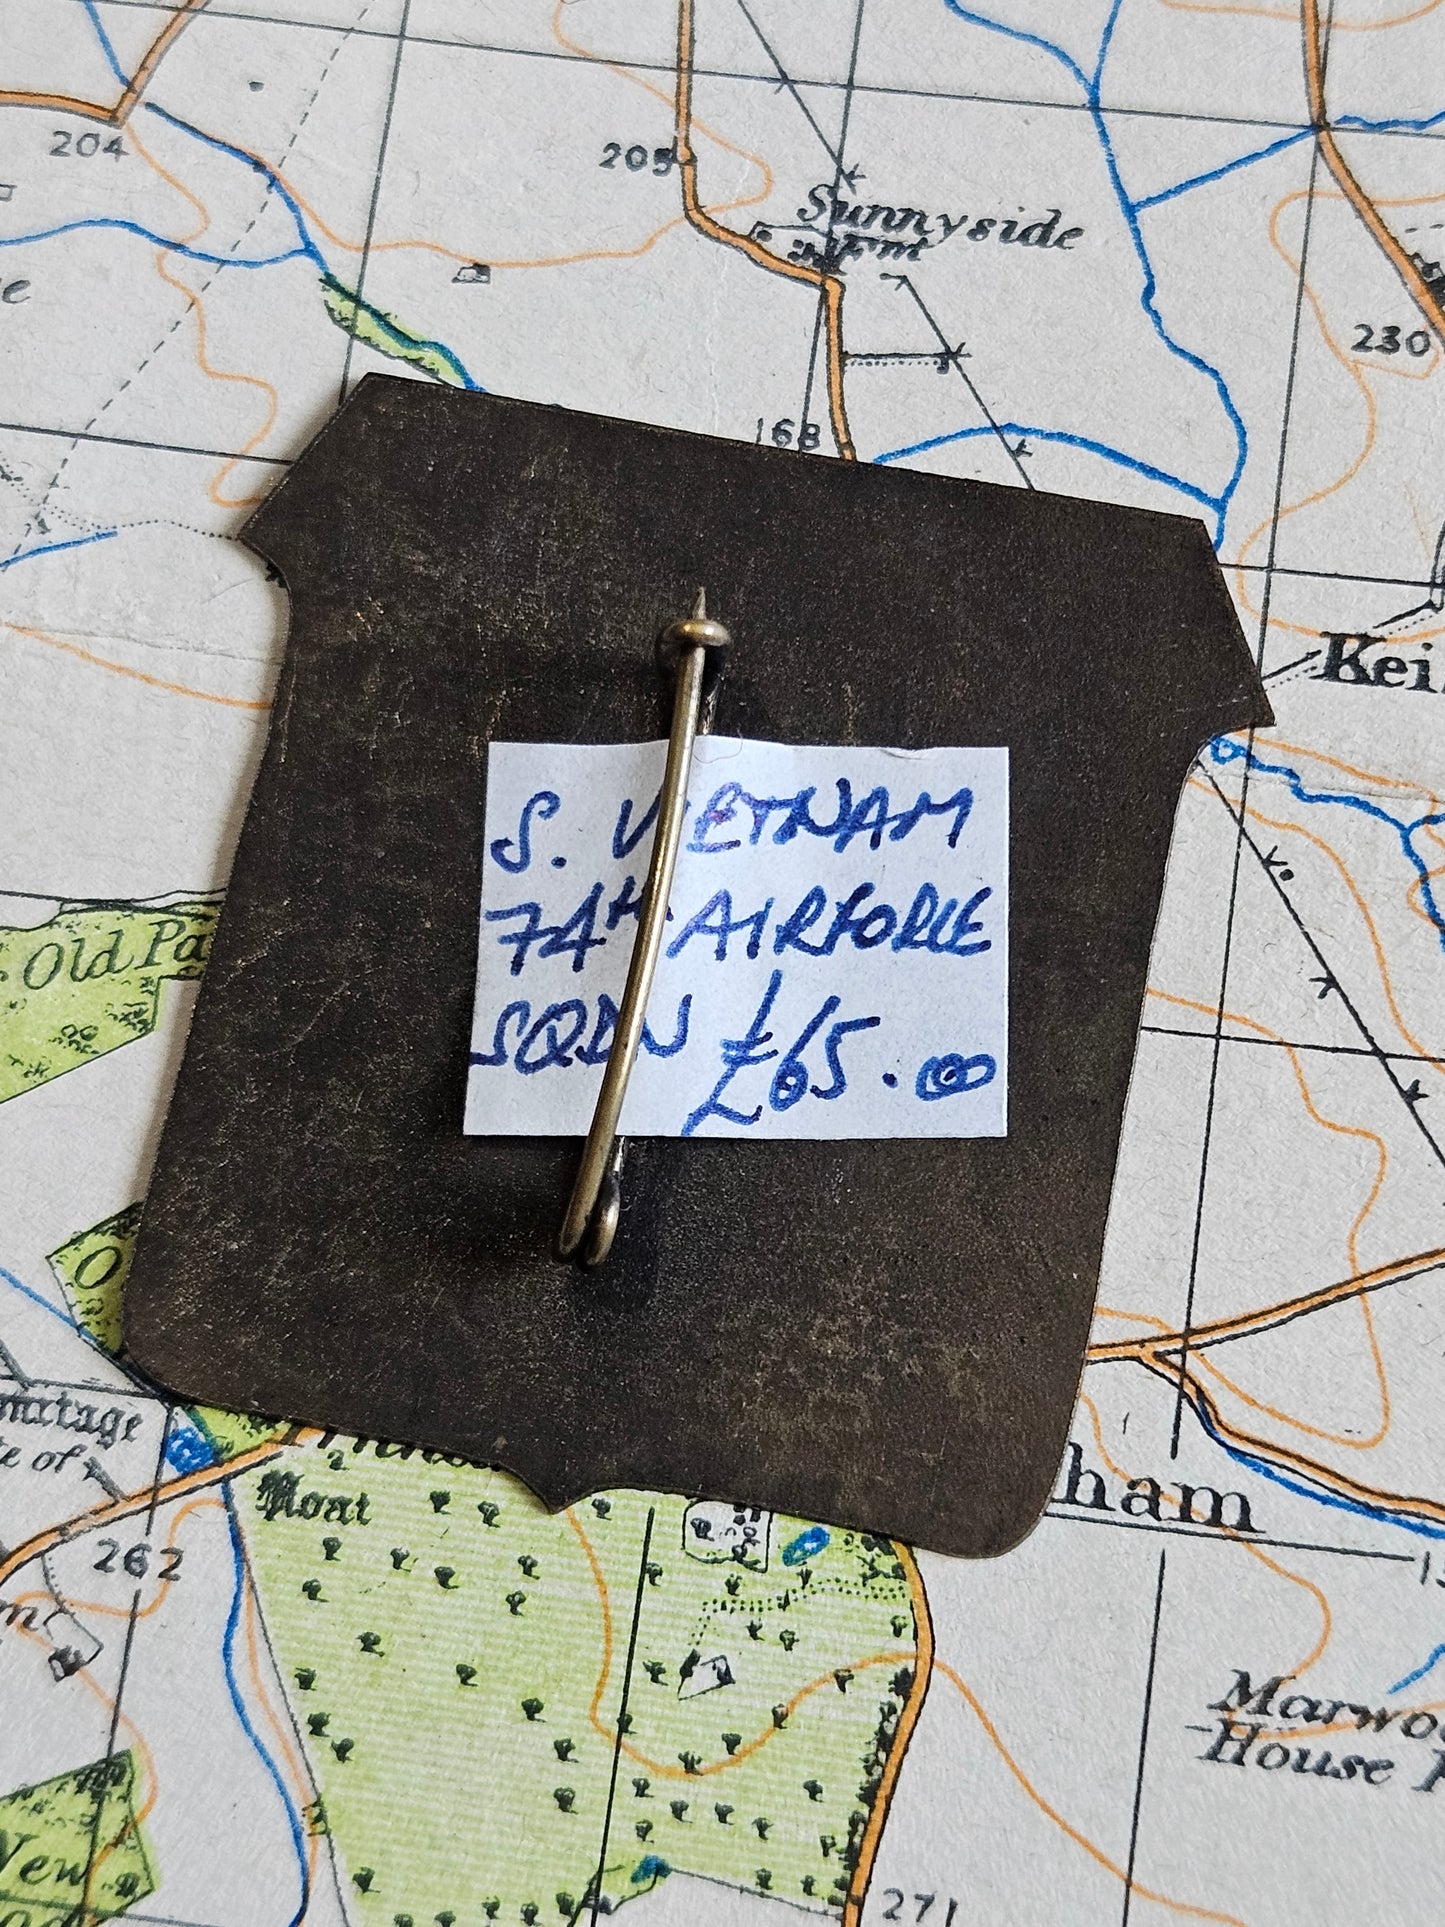 204
205
Sunnyside
Fm
e
230
168
Kei
S. VIETNAM
74th AIRFORCE
SQDN £65.00
Old Pa
O
mitage
te of
Moat
ham
262
m
Marwo
House F
New
271